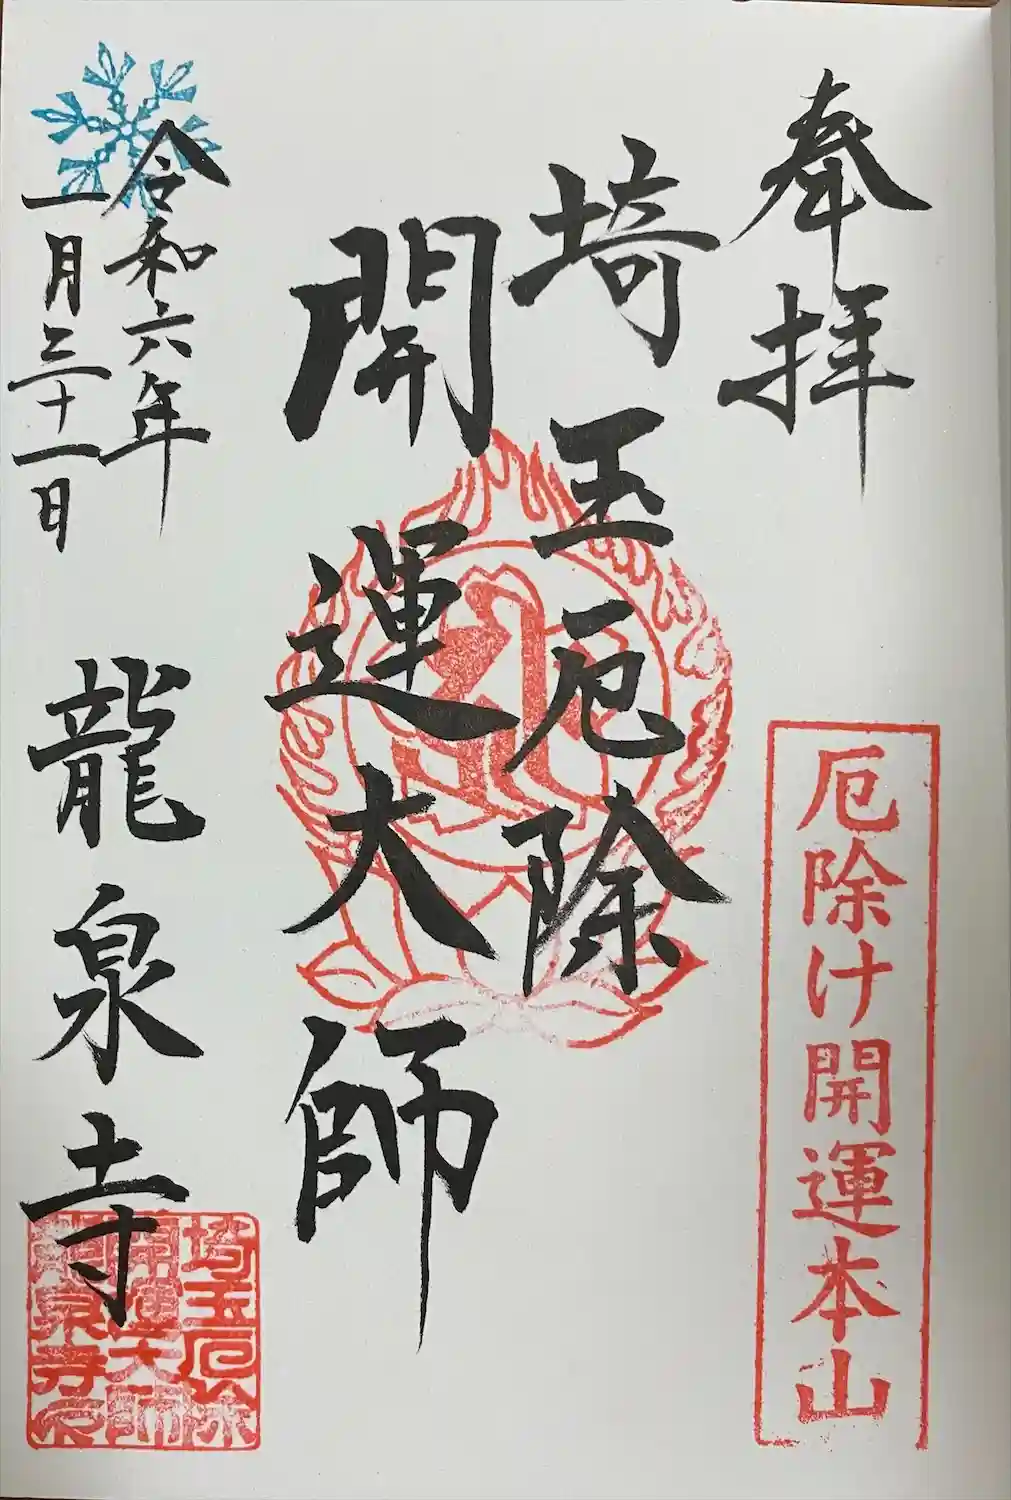 奉拝
厄除け開運本山
埼玉厄除
開運大師
令和六年
一月三十一日
龍泉寺
埼玉厄除
開運大師
龍泉寺印